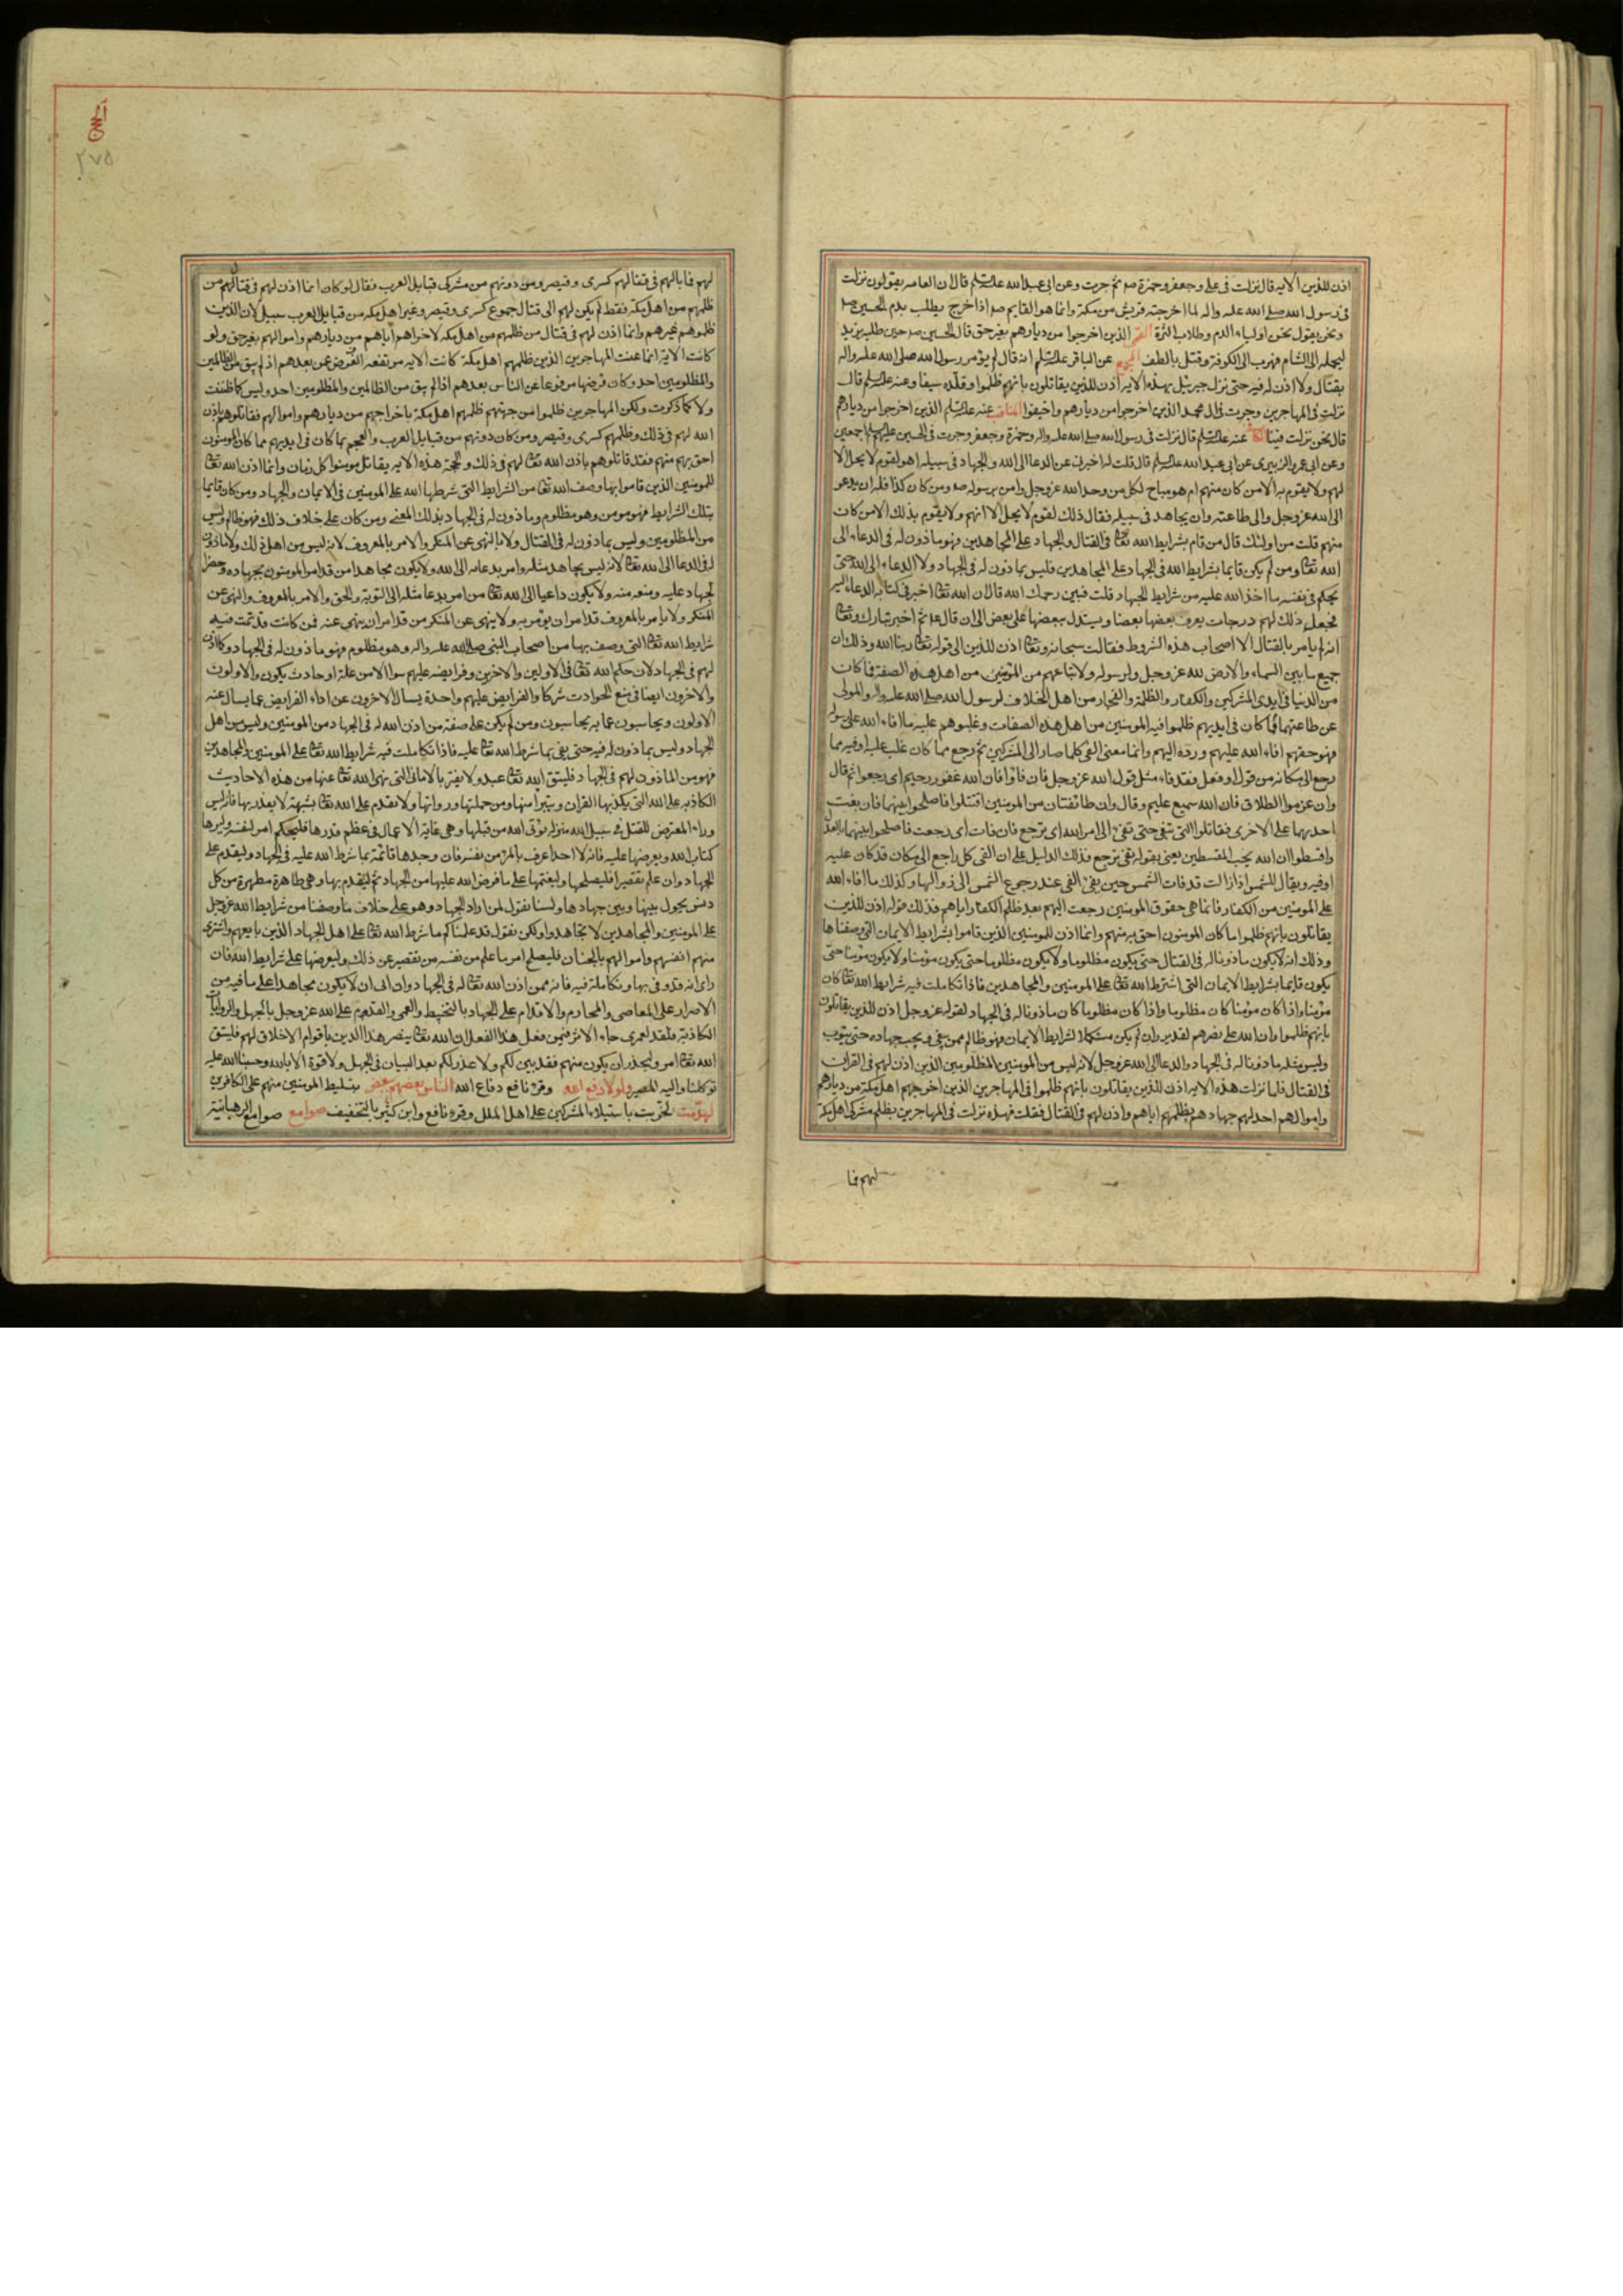 اذن للذين الايه قال نزلت فى على وجعفر وحمزة صم ثم جرت وعن ابى عبد الله عليه السلم قال ان العامه يقولون نزلت
فى رسول الله صلى الله عليه واله لما اخرجته قريش من مكة وانما هو القايم صم اذا خرج يطلب بدم الحسين صم
ونحن يقول نحن اولياء الدم وطلاب الترة القمى الذين اخرجوا من ديارهم بغير حق قال الحسين صم حين طلبه يزيد
ليحمله الى الشام فهرب الى الكوفة وقتل بالطف المجمع عن الباقر عليه السلم انه قال لم يؤمر رسول الله صلى الله عليه واله
بقتال ولا اذن له فيه حتى نزل جبرئيل بهذه الايه اذن للذين يقاتلون بانهم ظلموا وقلده سيفا وعنه عليه السلم قال
نزلت فى المهاجرين وجرت فى ال محمد الذين اخرجوا من ديارهم واخيفوا المناقب عنه عليه السلم الذين اخرجوا من ديارهم
قال نحن نزلت فينا الكافى عنه عليه السلم قال نزلت فى رسول الله صلى الله عليه واله وحمزة وجعفر وجرت فى الحسين عليهم السلم اجمعين
وعن ابى عمرو الزبيرى عن ابى عبد الله عليه السلم قال قلت له اخبرنى عن الدعا الى الله والجهاد فى سبيله اهو لقوم لا يحل الا
لهم ولا يقوم به الا من كان منهم ام هو مباح لكل من وحد الله عز وجل وامن برسوله صم ومن كان كذا فله ان يدعو
الى الله عز وجل والى طاعته وان يجاهد فى سبيله فقال ذلك لقوم لا يحل الا انهم ولا يقوم بذلك الا من كان
منهم قلت من اولئك قال من قام بشرايط الله تعالى فى القتال والجهاد على المجاهدين فهو ماذون له فى الدعاء الى
الله تعالى ومن لم يكن قايما بشرايط الله فى الجهاد على المجاهدين فليس بماذون له فى الجهاد ولا الدعاء الى الله حتى
يحكم فى نفسه ما اخذ الله عليه من شرايط الجهاد قلت فبين رحمك الله قال ان الله تعالى اخبر فى كتابه الدعاء اليه
فجعل ذلك لهم درجات يعرف بعضها بعضا ويستدل ببعضها على بعض الى ان قال عم ثم اخبر تبارك وتعالى
انه لم يامر بالقتال الا اصحاب هذه الشروط فقالت سبحانه وتعالى اذن للذين الى قوله تعالى ربنا الله وذلك ان
جميع ما بين السماء والارض لله عز وجل ولرسوله ولاتباعهم من المؤمنين من اهل هذه الصفة فما كان
من الدنيا فى ايدى المشركين والكفار والظلمة والفجار من اهل الخلاف لرسول الله صلى الله عليه واله والمولى
عن طاعتهما مما كان فى ايديهم ظلموا فيه المومنين من اهل هذه الصفات وغلبوهم عليه ما افاء الله على رسوله
فهو حقهم افاء الله عليهم ورده اليهم وانما معنى الفى كلما صار الى المشركين ثم رجع مما كان غلب عليه او فيه مما
رجع الى مكانه من قول او فعل فقد فاء مثل قول الله عز وجل فان فاؤا فان الله غفور رحيم اى رجعوا ثم قال
وان عزموا الطلاق فان الله سميع عليم وقال وان طائفتان من المومنين اقتتلوا فاصلحوا بينهما فان بغت
احديهما على الاخرى فقاتلوا التى تبغى حتى تفئ الى امر الله اى ترجع فان فات اى رجعت فاصلحوا بينهما بالعدل
واقسطوا ان الله يحب المقسطين يعنى بقوله تفى ترجع فذلك الدليل على ان الفى كل راجع الى مكان قد كان عليه
او فيه ويقال للشمس اذا زالت قد فات الشمس حين يفئ الفى عند رجوع الشمس الى زوالها وكذلك ما افاء الله
على المومنين من الكفار فانما هى حقوق المومنين رجعت اليهم بعد ظلم الكفار اياهم فذلك قوله اذن للذين
يقاتلون بانهم ظلموا ما كان المومنون احق به منهم وانما اذن للمومنين الذين قاموا بشرايط الايمان التى وصفناها
وذلك انه لا يكون ماذونا له فى القتال حتى يكون مظلوما ولا يكون مظلوما حتى يكون مؤمنا ولا يكون مؤمنا حتى
يكون قايما بشرايط الايمان التى اشترط الله تعالى على المومنين والمجاهدين فاذا تكاملت فيه شرايط الله تعالى كان
مؤمنا واذا كان مؤمنا كان مظلوما واذا كان مظلوما كان ماذونا له فى الجهاد لقوله عز وجل اذن للذين يقاتلون
بانهم ظلموا وان الله على نصرهم لقدير وان لم يكن مستكملا لشرايط الايمان فهو ظالم ممن يبغى ويجب جهاده حتى يتوب
وليس مثله ماذونا له فى الجهاد والدعا الى الله عز وجل لانه ليس من المومنين المظلومين الذين اذن لهم فى القران
فى القتال فلما نزلت هذه الايه اذن للذين يقاتلون بانهم ظلموا فى المهاجرين الذين اخرجهم اهل مكة من ديارهم
واموالهم احل لهم جهادهم بظلمهم اياهم واذن لهم فى القتال فقلت فهذه نزلت فى المهاجرين بظلم مشركى اهل مكة
لهم فا
٢٧٥
لهم فما بالهم فى قتالهم كسرى وقيصر ومن دونهم من مشركى قبايل العرب فقال لو كان انما اذن لهم فى قتال من
ظلمهم من اهل مكة فقط لم يكن لهم الى قتال جموع كسرى وقيصر وغير اهل مكه من قبايل العرب سبيل لان الذين
ظلموهم غيرهم وانما اذن لهم فى قتال من ظلمهم من اهل مكه لاخراجهم اياهم من ديارهم واموالهم بغير حق ولو
كانت الاية انما عنت المهاجرين الذين ظلمهم اهل مكة كانت الايه مرتفعه الفرض عن بعدهم اذ لم يبق من الظالمين
والمظلومين احد وكان فرضها مرفوعا عن الناس بعدهم اذا لم يبق من الظالمين والمظلومين احد وليس كما ظننت
ولا كما ذكرت ولكن المهاجرين ظلموا من جهتين ظلمهم اهل مكة باخراجهم من ديارهم واموالهم فقاتلوهم باذن
الله لهم فى ذلك وظلمهم كسرى وقيصر ومن كان دونهم من قبايل العرب والعجم بما كان فى ايديهم مما كان المومنون
احق بهم منهم فقد قاتلوهم باذن الله تعالى لهم فى ذلك وبحجة هذه الايه يقاتل مومنوا كل زمان وانما اذن الله تعالى
للمومنين الذين قاموا بما وصف الله تعالى من الشرايط التى شرطها الله على المومنين فى الايمان والجهاد ومن كان قايما
بتلك الشرايط فهو مومن وهو مظلوم وماذون له فى الجهاد بذلك المعنى ومن كان على خلاف ذلك فهو ظالم وليس
من المظلومين وليس بماذون له فى القتال ولا بالنهى عن المنكر والامر بالمعروف لانه ليس من اهل ذلك ولا ماذون
له فى الدعا الى الله تعالى لانه ليس يجاهد مثله وامر بدعائه الى الله ولا يكون مجاهدا من قد امر المومنون بجهاده وحظر
الجهاد عليه ومنعه منه ولا يكون داعيا الى الله تعالى من امر بدعا مثله الى التوبة والحق والامر بالمعروف والنهى عن
المنكر ولا يامر بالمعروف من قد امر ان يؤمر به ولا ينهى عن المنكر من قد امر ان ينهى عنه فمن كانت قد تمت فيه
شرايط الله تعالى التى وصف بها من اصحاب النبى صلى الله عليه واله وهو مظلوم فهو ماذون له فى الجهاد وكما اذن
لهم فى الجهاد لان حكم الله تعالى فى الاولين والاخرين وفرايضه عليهم سوا الا من علة او حادث يكون والاولون
والاخرون ايضا فى منع الحوادث شركا والفرايض عليهم واحدة يسال الاخرون عن اداء الفرايض عما يسال عنه
الاولون ويحاسبون عما به يحاسبون ومن لم يكن على صفة من اذن الله له فى الجهاد من المومنين وليس من اهل
الجهاد وليس بماذون له فيه حتى يفى بما شرط الله تعالى عليه فاذا تكاملت فيه شرايط الله تعالى على المومنين والمجاهدين
فهو من الماذون لهم فى الجهاد فليتق الله تعالى عبد ولا يغتر بالامانى التى نهى الله تعالى عنها من هذه الاحاديث
الكاذبه على الله التى يكذبها القران ويتبرأ منها ومن حملتها ورواتها ولا يقدم على الله تعالى بشبهة لا يعذر بها فانه ليس
وراء المعترض للقتل فى سبيل الله منزلة يؤتى الله من قبلها وهى غاية الاعمال فى عظم قدرها فليحكم امر لنفسه وليرها
كتاب الله ويعرضها عليه فانه لا احد اعرف بالمرء من نفسه فان وجدها قائمة بما شرط الله عليه فى الجهاد وليقدم على
الجهاد وان علم تقصيرا فليصلحها وليقمها على ما فرض الله عليها من الجهاد ثم ليقدم بها وهى طاهرة مطهرة من كل
دنس يحول بينها وبين جهادها ولسنا نقول لمن اراد الجهاد وهو على خلاف ما وصفنا من شرايط الله عز وجل
على المومنين والمجاهدين لا تجاهدوا ولكن نقول قد علمناكم ما شرط الله تعالى على اهل الجهاد الذين بايعهم واشترى
منهم انفسهم واموالهم بالجنان فليصلح امر ما علم من نفسه من تقصير عن ذلك وليعرضها على شرايط الله فان
راى انه قد وفى بها وتكاملة فيه فانه ممن اذن الله تعالى له فى الجهاد وان ابى ان لا يكون مجاهدا على ما فيه من
الاصرار على المعاصى والمحارم والاقدام على الجهاد بالتخبيط والعمى والقدوم على الله عز وجل بالجهل والروايات
الكاذبة فلقد لعمرى جاء الاثر فيمن فعل هذا الفعل ان الله تعالى ينصر هذا الدين باقوام لا خلاق لهم فليتق
الله تعالى امر وليحذر ان يكون منهم فقد بين لكم ولا عذر لكم بعد البيان فى الجهل ولا قوة الا بالله وحسبنا الله عليه
توكلنا واليه المصير ولولا دفع الله وقرئ نافع دفاع الله الناس بعضهم ببعض بتسليط المومنين منهم على الكافرين
لهدمت لخربت باستيلاء المشركين على اهل الملل وقرء نافع وابن كثير بالتخفيف صوامع صوامع الرهبانية